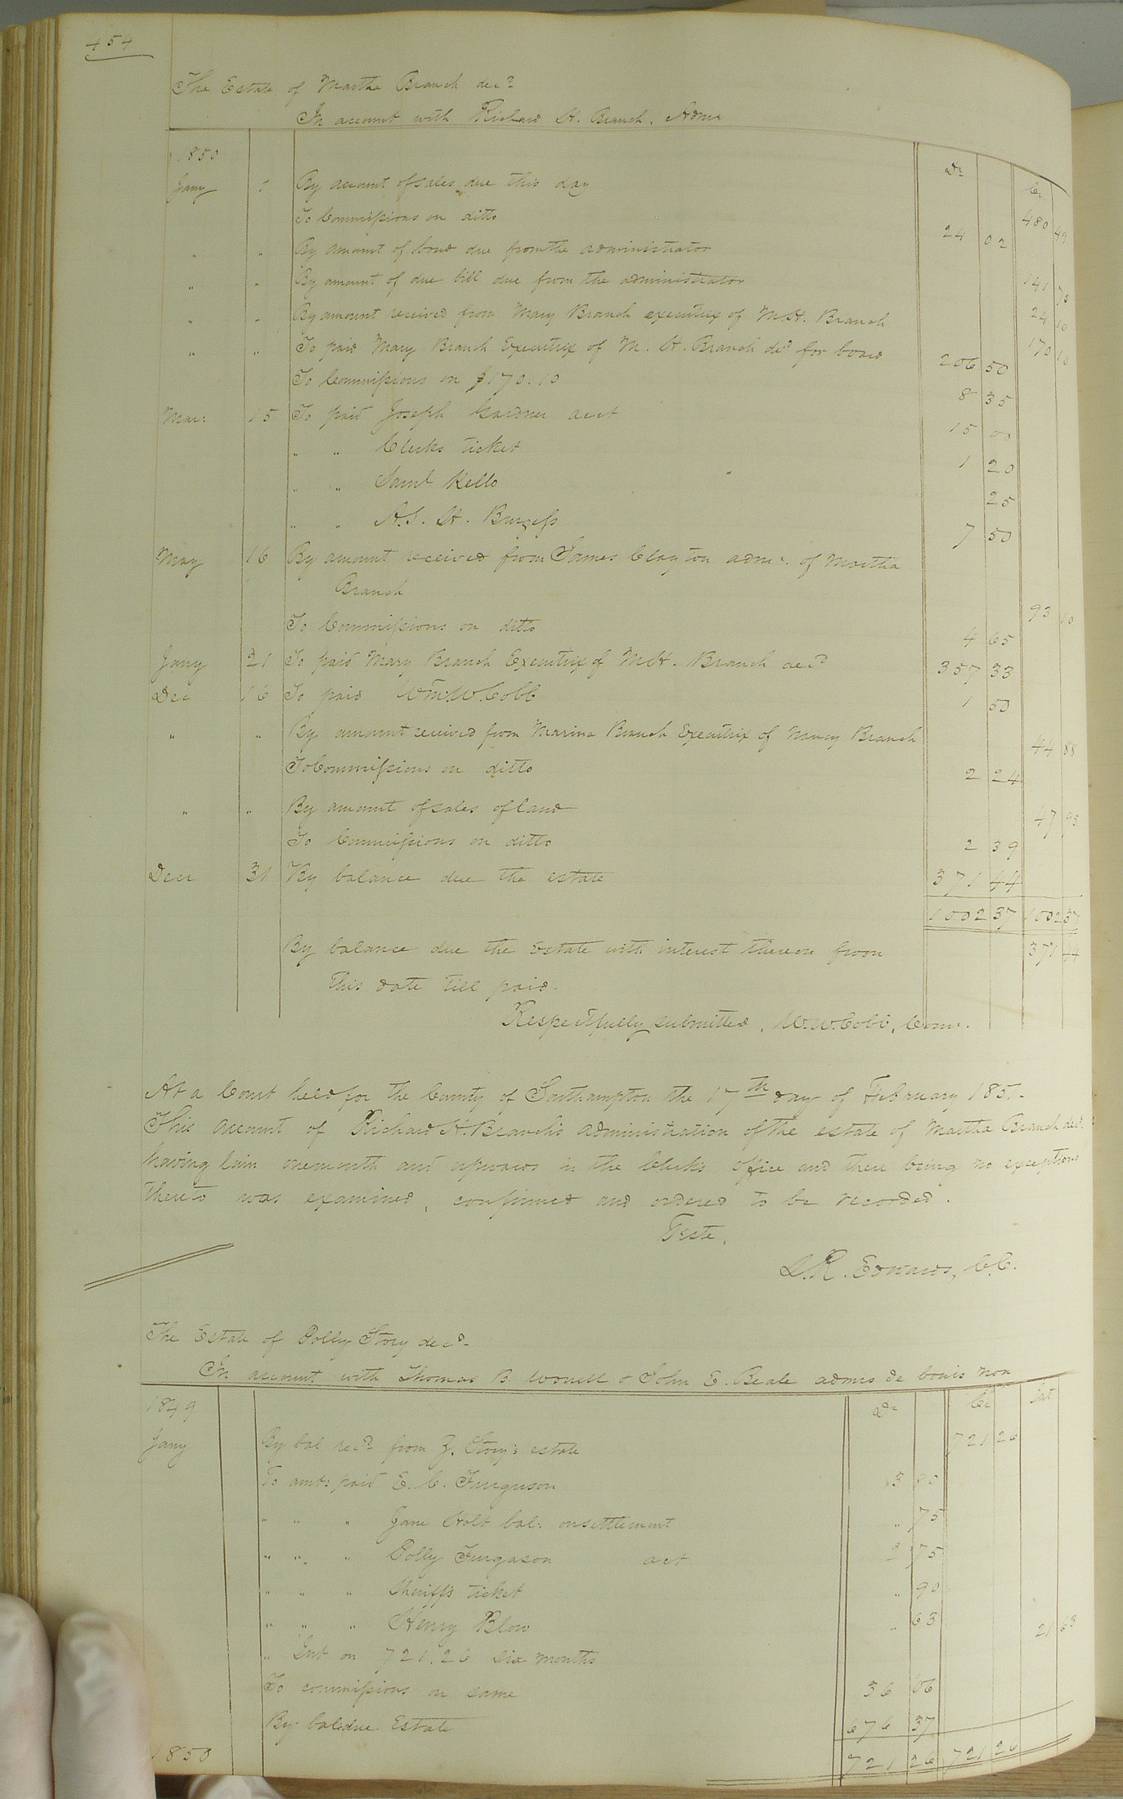 454
The Estate of Martha Branch decd
In account with Richard H. Branch. Admr
Dr Cr
1850
Jany 1 By amount of sales due this day 480 49
To Commissions on ditto 24 02
" " By amount of bond due from the administrator 141 70
" " By amount of due bill due from the administrator 24 10
" " By amount received from Mary Branch executrix of M.H. Branch 170 10
" " To paid Mary Branch Executrix of M. H. Branch decd for board 206 50
To Commissions on $170.10 8 35
Mar: 15 To paid Joseph Gardner acct 15 00
" " Clerks ticket 1 20
" " Saml Kello 25
" " A.S. H. Burgess 7 50
May 16 By amount received from James Clayton admr. of Martha
Branch 93 00
To Commissions on ditto 4 65
Jany 21 To paid Mary Branch Executrix of M.H. Branch decd 357 33
Dec 16 To paid Wm. W. Cobb 1 50
" " By amount received from Marina Branch Executrix of Mary Branch 44 88
To Commissions on ditto 2 24
" " By amount of sales of land 47 95
To Commissions on ditto 2 39
Decr 31 By balance due the estate 371 44
1002 37 1002 37
By balance due the Estate with interest thereon from 371 44
this date till paid.
Respectfully submitted, W.W. Cobb, Comr.
At a Court held for the County of Southampton the 17th day of February 1851.
This account of Richard H. Branch's administration of the estate of Martha Branch decd.
having lain one month and upwards in the Clerks office and there being no exceptions
thereto was examined, confirmed and ordered to be recorded.
Teste,
L.R. Edwards, C.C.
The Estate of Polly Story decd.
In account with Thomas B. Worrell & John E. Beale admrs de bonis non
Dr Cr Int
1849
Jany By bal recd from Z. Story's estate 721 26
To amt: paid E. C. Furguson
" " " Jane Holt bal: on settlement " 75
" " " Polly Furgason act 2 75
" " " Sheriff's ticket " 90
" " " Henry Blow " 63
" Int on 721.26 six months 21 63
To commissions on same 36 06
By bal due Estate 676 37
721 26 721 26
1850